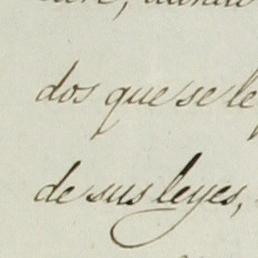 dos que se le
de sus leyes,